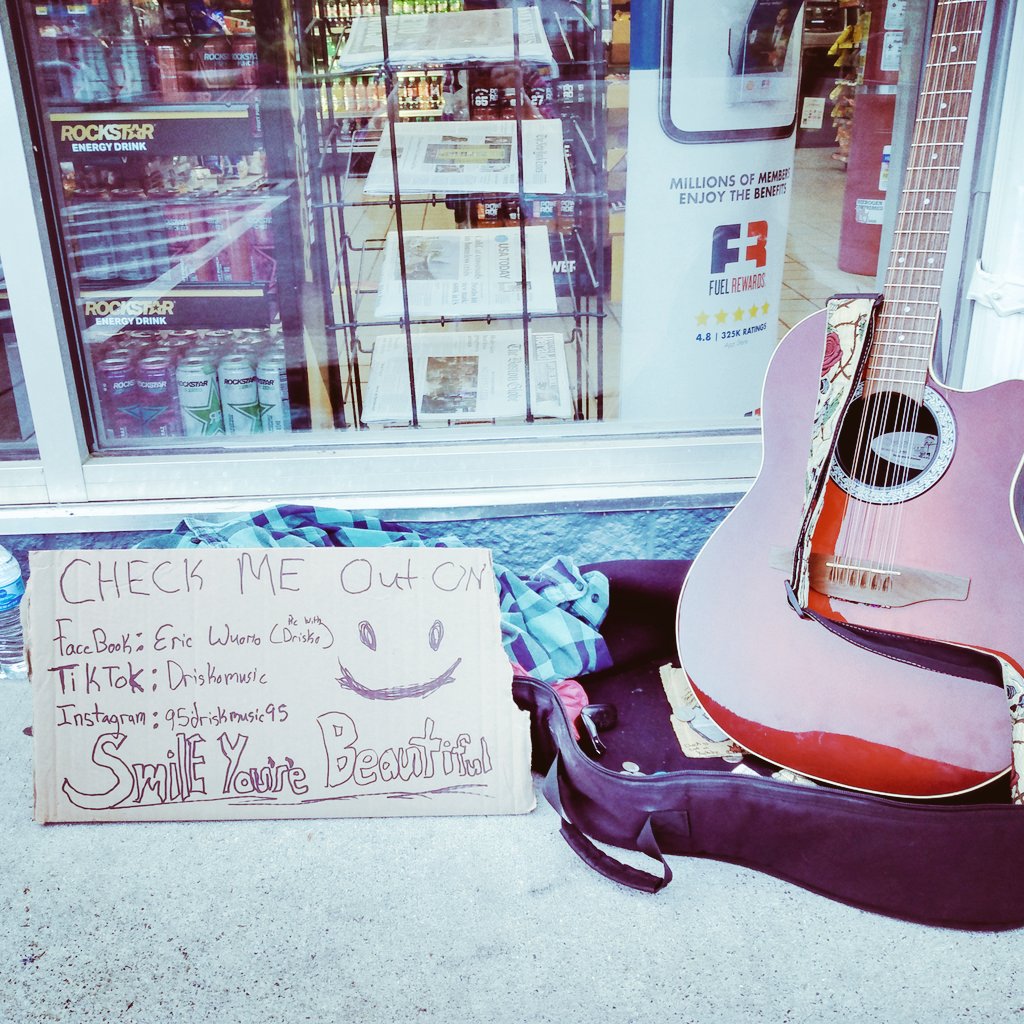 ROCKSTAR
ROCKSTAR
ENERGY DRINK
ROCKSTAR
ENERGY DRINK
ROCKSTAR
ROCKSTAR
USA TODAY
The Boston Globe
MILLIONS OF MEMBERS
ENJOY THE BENEFITS
FR
FUEL REWARDS
4.8 | 325K RATINGS
App Store
CHECK ME OUT ON
FaceBook: Eric Wuorio (Pic with Drisko)
TikTok: Driskomusic
Instagram: 95driskmusic95
SmilE You're Beautiful